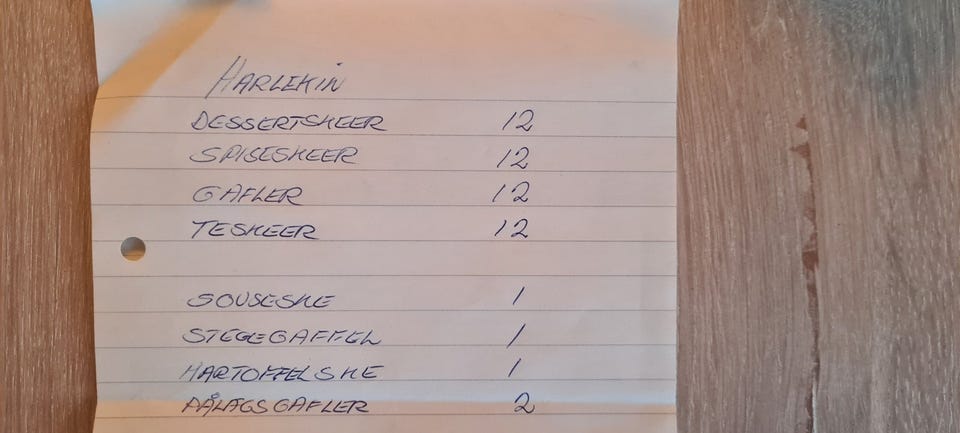 HARLEKIN
DESSERTSKEER 12
SPISESKEER 12
GAFLER 12
TESKEER 12
SOUSESKE 1
STEGEGAFFEL 1
KARTOFFELSKE 1
PÅLÆGSGAFLER 2